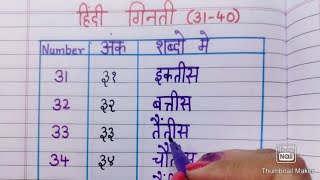 हिंदी गिनती (31-40)
Number अंक शब्दो मे
31 ३१ इकतीस
32 ३२ बत्तीस
33 ३३ तैंतीस
34 ३४
Thumbnail Maker